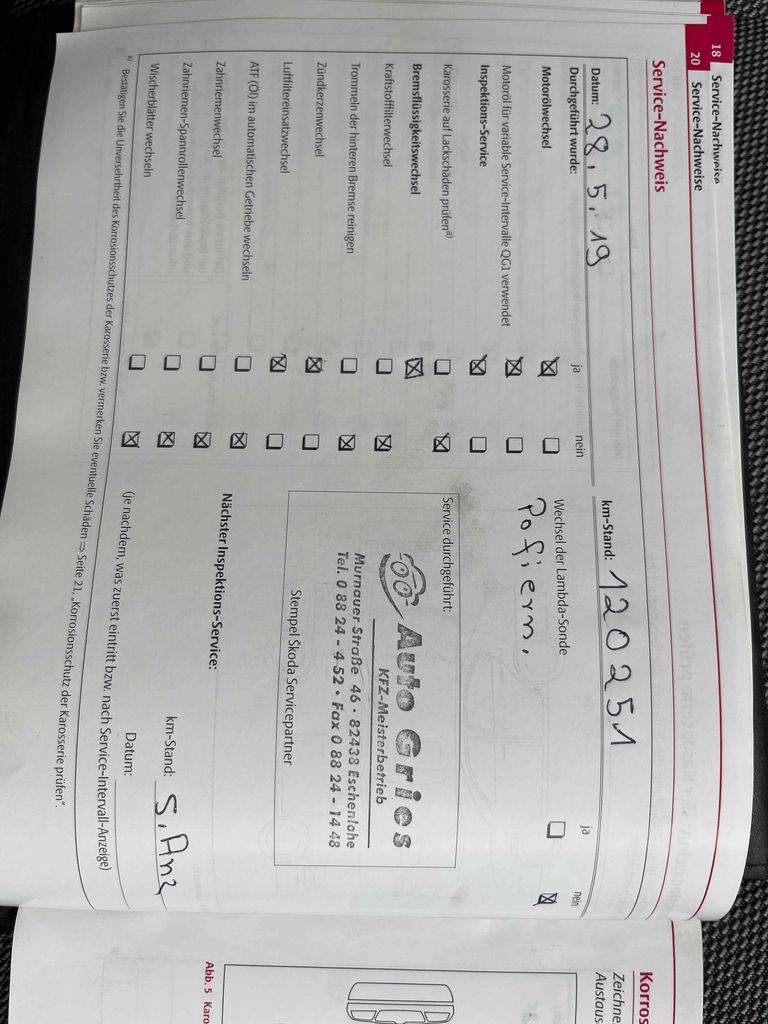 18 Service-Nachweise
20 Service-Nachweise
Service-Nachweis
Datum: 28.5.19 km-Stand: 120251
Durchgeführt wurde: ja nein ja nein
Motorölwechsel ☒ ☐ Wechsel der Lambda-Sonde ☐ ☒
Motoröl für variable Service-Intervalle QG1 verwendet ☒ ☐
Inspektions-Service ☒ ☐
Karosserie auf Lackschäden prüfen a) ☐ ☒
Bremsflüssigkeitswechsel ☒
Kraftstofffilterwechsel ☐ ☒
Trommeln der hinteren Bremse reinigen ☐ ☒
Zündkerzenwechsel ☒ ☐
Luftfiltereinsatzwechsel ☒ ☐
ATF (Öl) im automatischen Getriebe wechseln ☐ ☒
Zahnriemenwechsel ☐ ☒
Zahnriemen-Spannrollenwechsel ☐ ☒
Wischerblätter wechseln ☐ ☒
Service durchgeführt:
Auto Gries
KFZ-Meisterbetrieb
Murnauer Straße 46 · 82438 Eschenlohe
Tel. 0 88 24 - 4 52 • Fax 0 88 24 - 14 48
Stempel Škoda Servicepartner
Nächster Inspektions-Service:
km-Stand: S. Anz
Datum:
(je nachdem, was zuerst eintritt bzw. nach Service-Intervall-Anzeige)
a) Bestätigen Sie die Unversehrtheit des Korrosionsschutzes der Karosserie bzw. vermerken Sie eventuelle Schäden ⇒ Seite 21, „Korrosionsschutz der Karosserie prüfen“.
Korros
Zeichne
Austaus
Abb. 5 Karo